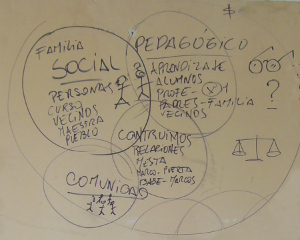 FAMILIA
SOCIAL
PERSONAS
CURSO
VECINOS
MAESTRA
PUEBLO
PEDAGÓGICO
APRENDIZAJE
ALUMNOS
PROFE-
PADRES-FAMILIA
VECINOS
?
CONTRUIMOS
RELACIONES
MESTA
MARCO-PUERTA
BASE-MARCOS
COMUNIDAD